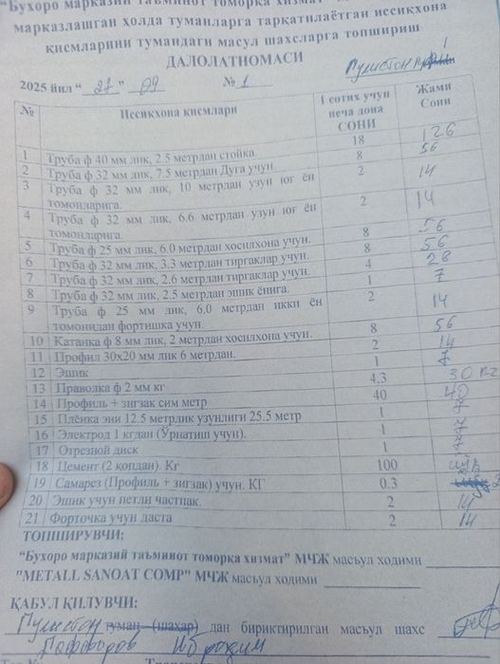 "Бухоро марказий таъминот томорқа хизмат"
марказлашган холда туманларга тарқатилаётган иссиқхона
қисмларини тумандаги масул шахсларга топшириш
ДАЛОЛАТНОМАСИ
2025 йил " 27 " 09 № 1
№ Иссиқхона қисмлари 1 сотих учун неча дона СОНИ Жами Сони
1 Труба ф 40 мм лик, 2.5 метрдан стойка. 18 126
2 Труба ф 32 мм лик, 7.5 метрдан Дуга учун. 8 56
3 Труба ф 32 мм лик, 10 метрдан узун юг ён томонларига. 2 14
4 Труба ф 32 мм лик, 6.6 метрдан узун юг ён томонларига. 2 14
5 Труба ф 25 мм лик, 6.0 метрдан хосилхона учун. 8 56
6 Труба ф 32 мм лик, 3.3 метрдан тиргаклар учун. 8 56
7 Труба ф 32 мм лик, 2.6 метрдан тиргаклар учун. 4 28
8 Труба ф 32 мм лик, 2.5 метрдан эшик ёнига. 1 7
9 Труба ф 25 мм лик, 6.0 метрдан икки ён томонидан фортишка учун. 2 14
10 Катанка ф 8 мм лик, 2 метрдан хосилхона учун. 8 56
11 Профил 30х20 мм лик 6 метрдан. 2 14
12 Эшик 1 7
13 Праволка ф 2 мм кг 4.3 30 кг
14 Профиль + зигзак сим метр 40
15 Плёнка эни 12.5 метрлик узунлиги 25.5 метр 1 7
16 Электрод 1 кгдан (Ўрнатиш учун). 1 7
17 Отрезной диск 1 7
18 Цемент (2 копдан). Кг 100
19 Саморез (Профиль + зигзак) учун. КГ 0.3
20 Эшик учун петли частпак. 2 14
21 Форточка учун даста 2 14
ТОПШИРУВЧИ:
"Бухоро марказий таъминот томорқа хизмат" МЧЖ масъул ходими
"METALL SANOAT COMP" МЧЖ масъул ходими
ҚАБУЛ ҚИЛУВЧИ:
туман (шаҳар) дан бириктирилган масъул шахс